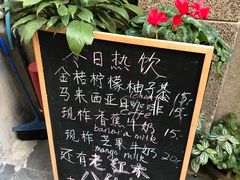 今日热饮
金桔柠檬柚子茶 15,-
马来西亚 咖啡 15,-
现炸香蕉牛奶 15,-
banana milk
现炸芒果牛奶 20,-
mango milk
还有老红米